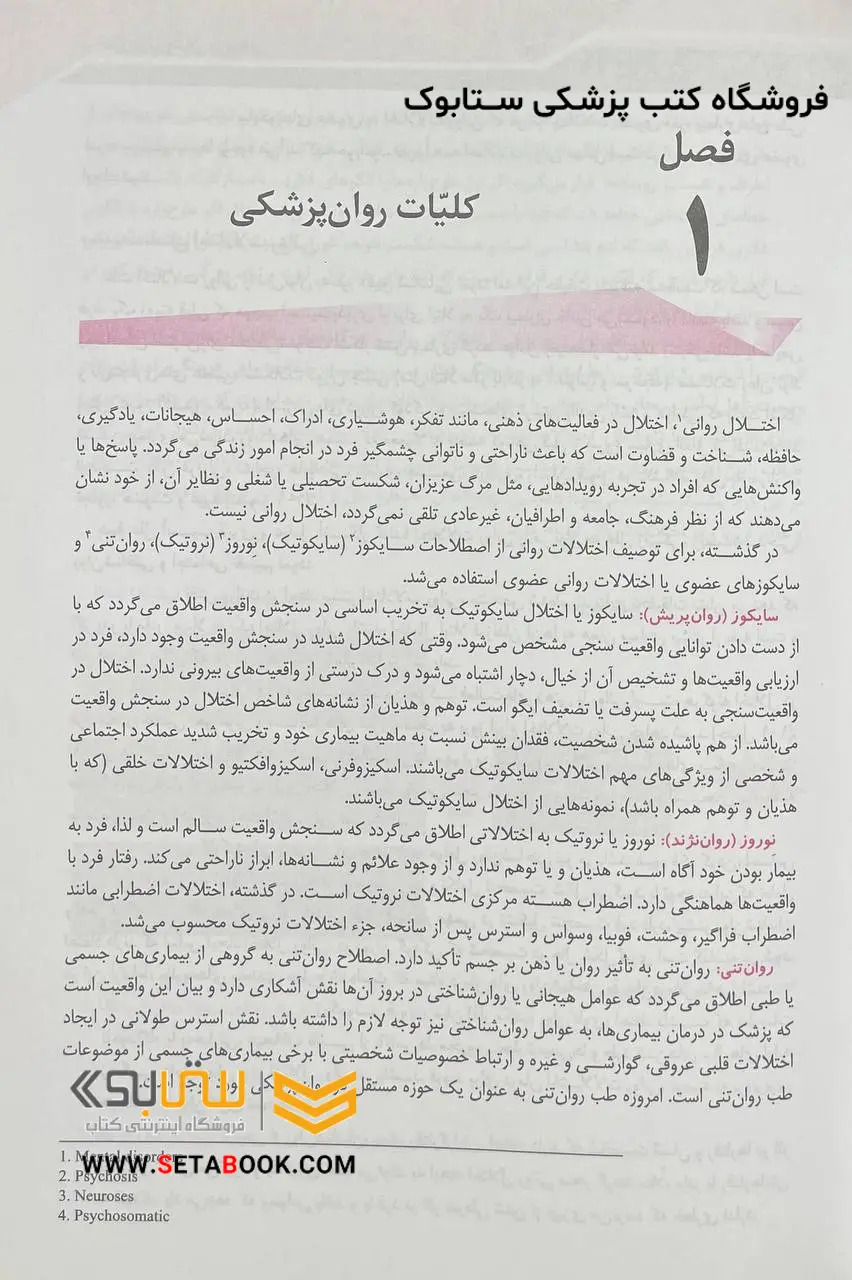 فروشگاه کتب پزشکی ستابوک
فصل
۱
کلیّات روان‌پزشکی
اختلال روانی۱، اختلال در فعالیت‌های ذهنی، مانند تفکر، هوشیاری، ادراک، احساس، هیجانات، یادگیری،
حافظه، شناخت و قضاوت است که باعث ناراحتی و ناتوانی چشمگیر فرد در انجام امور زندگی می‌گردد. پاسخ‌ها یا
واکنش‌هایی که افراد در تجربه رویدادهایی، مثل مرگ عزیزان، شکست تحصیلی یا شغلی و نظایر آن، از خود نشان
می‌دهند که از نظر فرهنگ، جامعه و اطرافیان، غیرعادی تلقی نمی‌گردد، اختلال روانی نیست.
در گذشته، برای توصیف اختلالات روانی از اصطلاحات سایکوز۲ (سایکوتیک)، نوروز۳ (نروتیک)، روان‌تنی۴ و
سایکوزهای عضوی یا اختلالات روانی عضوی استفاده می‌شد.
سایکوز (روان‌پریش): سایکوز یا اختلال سایکوتیک به تخریب اساسی در سنجش واقعیت اطلاق می‌گردد که با
از دست دادن توانایی واقعیت سنجی مشخص می‌شود. وقتی که اختلال شدید در سنجش واقعیت وجود دارد، فرد در
ارزیابی واقعیت‌ها و تشخیص آن از خیال، دچار اشتباه می‌شود و درک درستی از واقعیت‌های بیرونی ندارد. اختلال در
واقعیت‌سنجی به علت پسرفت یا تضعیف ایگو است. توهم و هذیان از نشانه‌های شاخص اختلال در سنجش واقعیت
می‌باشد. از هم پاشیده شدن شخصیت، فقدان بینش نسبت به ماهیت بیماری خود و تخریب شدید عملکرد اجتماعی
و شخصی از ویژگی‌های مهم اختلالات سایکوتیک می‌باشند. اسکیزوفرنی، اسکیزوافکتیو و اختلالات خلقی (که با
هذیان و توهم همراه باشد)، نمونه‌هایی از اختلال سایکوتیک می‌باشند.
نوروز (روان‌نژند): نوروز یا نروتیک به اختلالاتی اطلاق می‌گردد که سنجش واقعیت سالم است و لذا، فرد به
بیمار بودن خود آگاه است، هذیان و یا توهم ندارد و از وجود علائم و نشانه‌ها، ابراز ناراحتی می‌کند. رفتار فرد با
واقعیت‌ها هماهنگی دارد. اضطراب هسته مرکزی اختلالات نروتیک است. در گذشته، اختلالات اضطرابی مانند
اضطراب فراگیر، وحشت، فوبیا، وسواس و استرس پس از سانحه، جزء اختلالات نروتیک محسوب می‌شد.
روان‌تنی: روان‌تنی به تأثیر روان یا ذهن بر جسم تأکید دارد. اصطلاح روان‌تنی به گروهی از بیماری‌های جسمی
یا طبی اطلاق می‌گردد که عوامل هیجانی یا روان‌شناختی در بروز آن‌ها نقش آشکاری دارد و بیان این واقعیت است
که پزشک در درمان بیماری‌ها، به عوامل روان‌شناختی نیز توجه لازم را داشته باشد. نقش استرس طولانی در ایجاد
اختلالات قلبی عروقی، گوارشی و غیره و ارتباط خصوصیات شخصیتی با برخی بیماری‌های جسمی از موضوعات
طب روان‌تنی است. امروزه طب روان‌تنی به عنوان یک حوزه مستقل در روان‌پزشکی مورد توجه است.
ستابوک
فروشگاه اینترنتی کتاب
1. Mental disorders
WWW.SETABOOK.COM
2. Psychosis
3. Neuroses
4. Psychosomatic